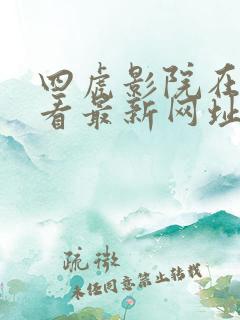 四虎影院在
看最新网址
疏微
未经同意禁止转载